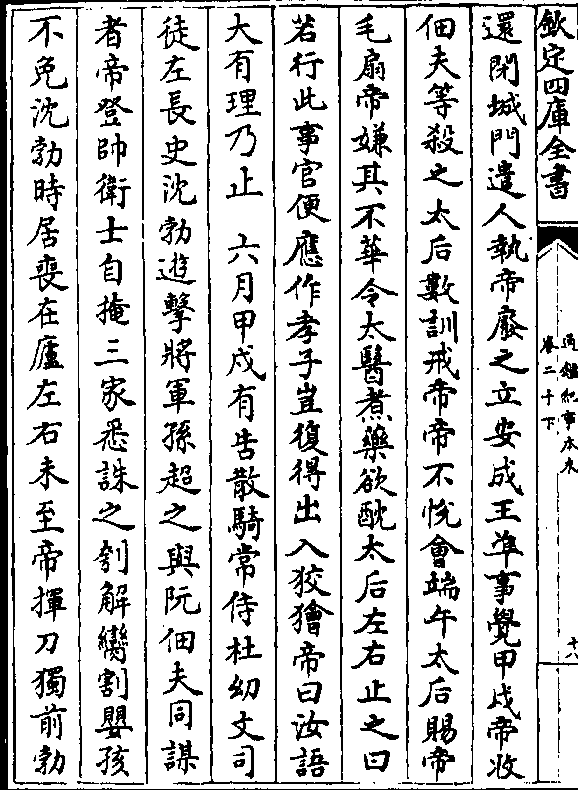 欽定四庫全書
通鑑紀事本末
卷二十下
十八
還閉城門遣人執帝廢之立安成王準事覺甲戌帝收
佃夫等殺之太后數訓戒帝帝不悅會端午太后賜帝
毛扇帝嫌其不華令太醫煮藥欲酖太后左右止之曰
若行此事官便應作孝子豈復得出入狡獪帝曰汝語
大有理乃止　六月甲戌有告散騎常侍杜幼文司
徒左長史沈勃遊擊將軍孫超之與阮佃夫同謀
者帝登帥衛士自掩三家悉誅之刳解臠割嬰孩
不免沈勃時居喪在廬左右未至帝揮刀獨前勃